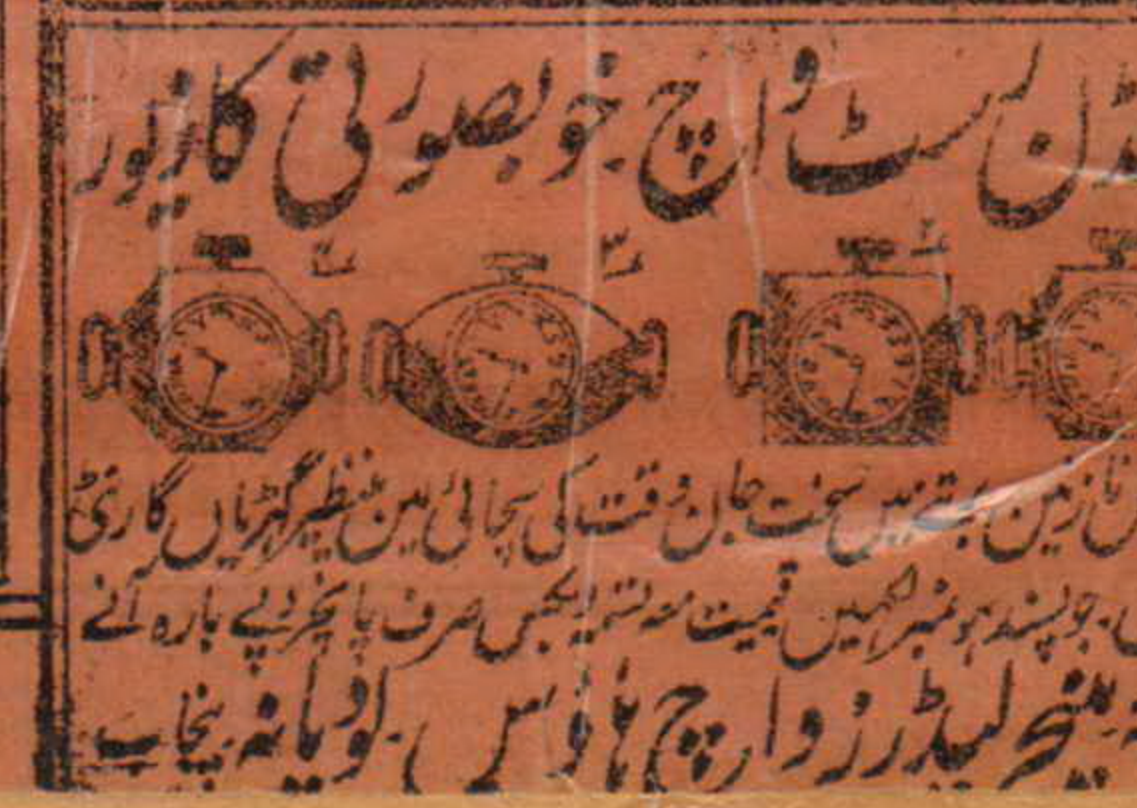 رسٹ واچ خوبصورتی کا زیور
۴ ۳ ۲
نازنین برتنے میں سخت جان وقت کی سچائی میں بےنظیر گھڑیاں گارنٹی
جو پسند ہو نمبر لکھیں قیمت معہ تسمہ و بکس صرف پانچروپے بارہ آنے
مینیجر لیڈرز واچ ہاؤس لودیانہ پنجاب